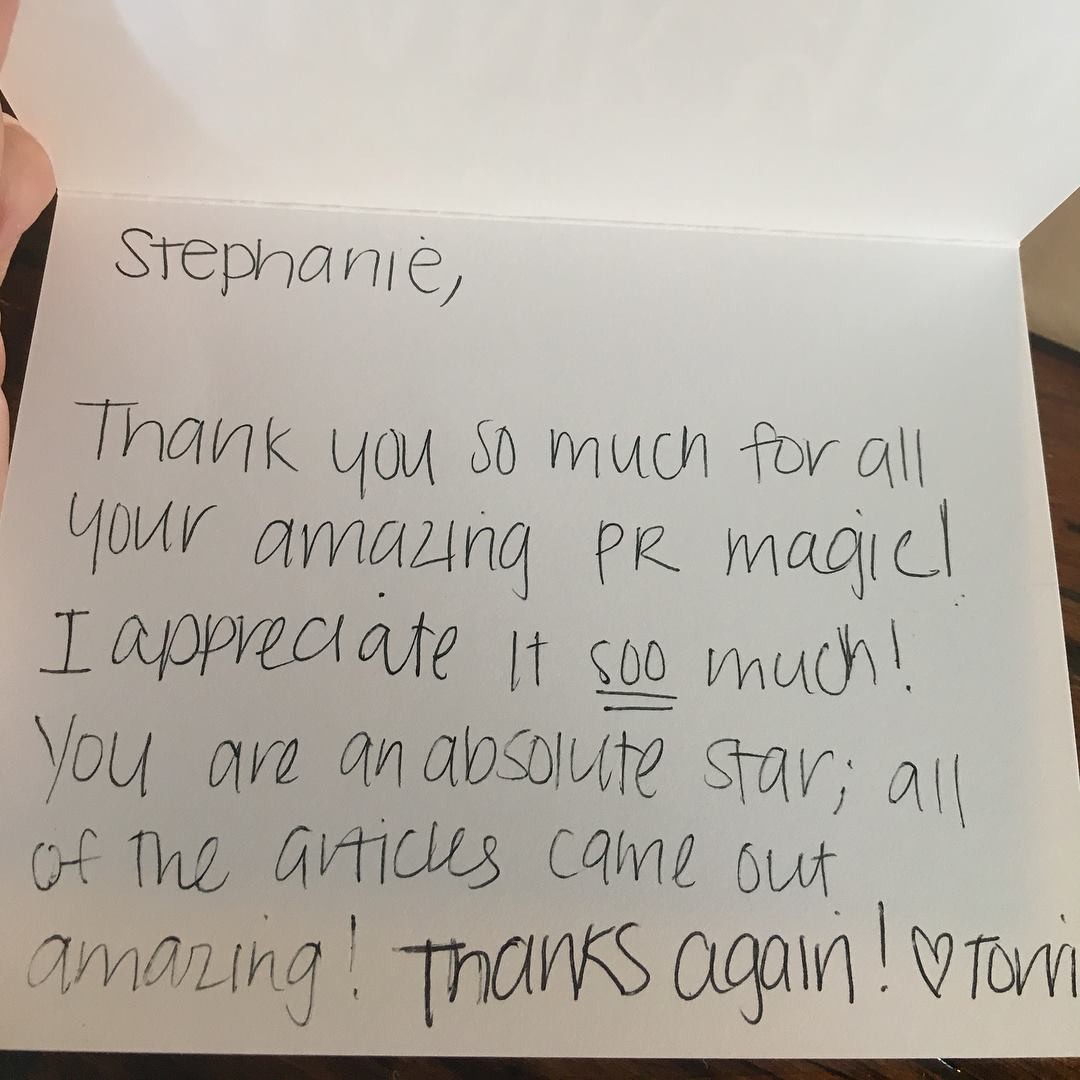 Stephanie,
Thank you so much for all
your amazing PR magic!
I appreciate it soo much!
You are an absolute star; all
of the articles came out
amazing! Thanks again! ♡